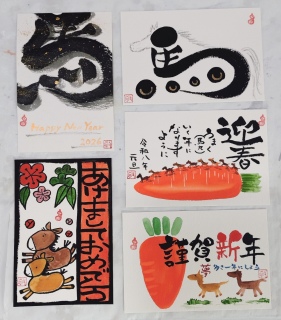 馬
Happy New Year
2026
馬
迎春
うまく
いく年に
なります
ように
令和八年
元旦
あけましておめでとう
謹賀新年
夢